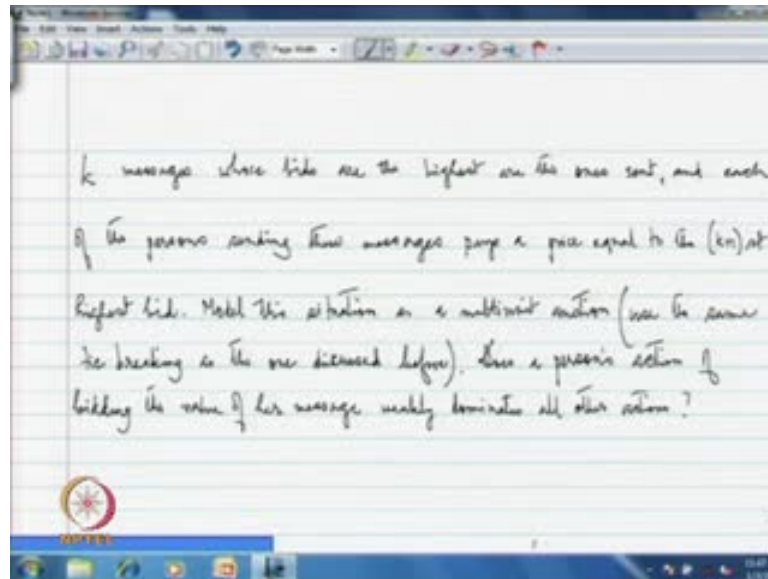 File Edit View Insert Actions Tools Help
Page Width
k messages whose bids are the highest are the ones sent, and each
of the persons sending these messages pays a price equal to the (k+1)st
highest bid. Model this situation as a multiunit auction (use the same
tie breaking as the one discussed before). Does a person's action of
bidding the value of her message weakly dominates all other actions?
NPTEL